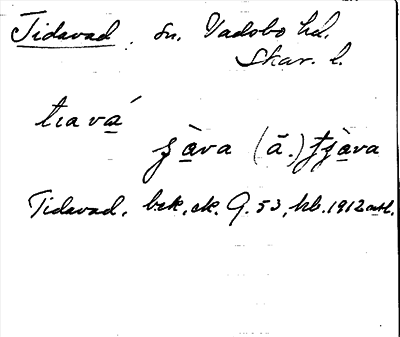 Tidavad, sn. Vadsbo hd.
Skar. l.
tɩavá
ʒàva (ä.) tʒàva
Tidavad, bek, ek. G. 53, hb. 1912